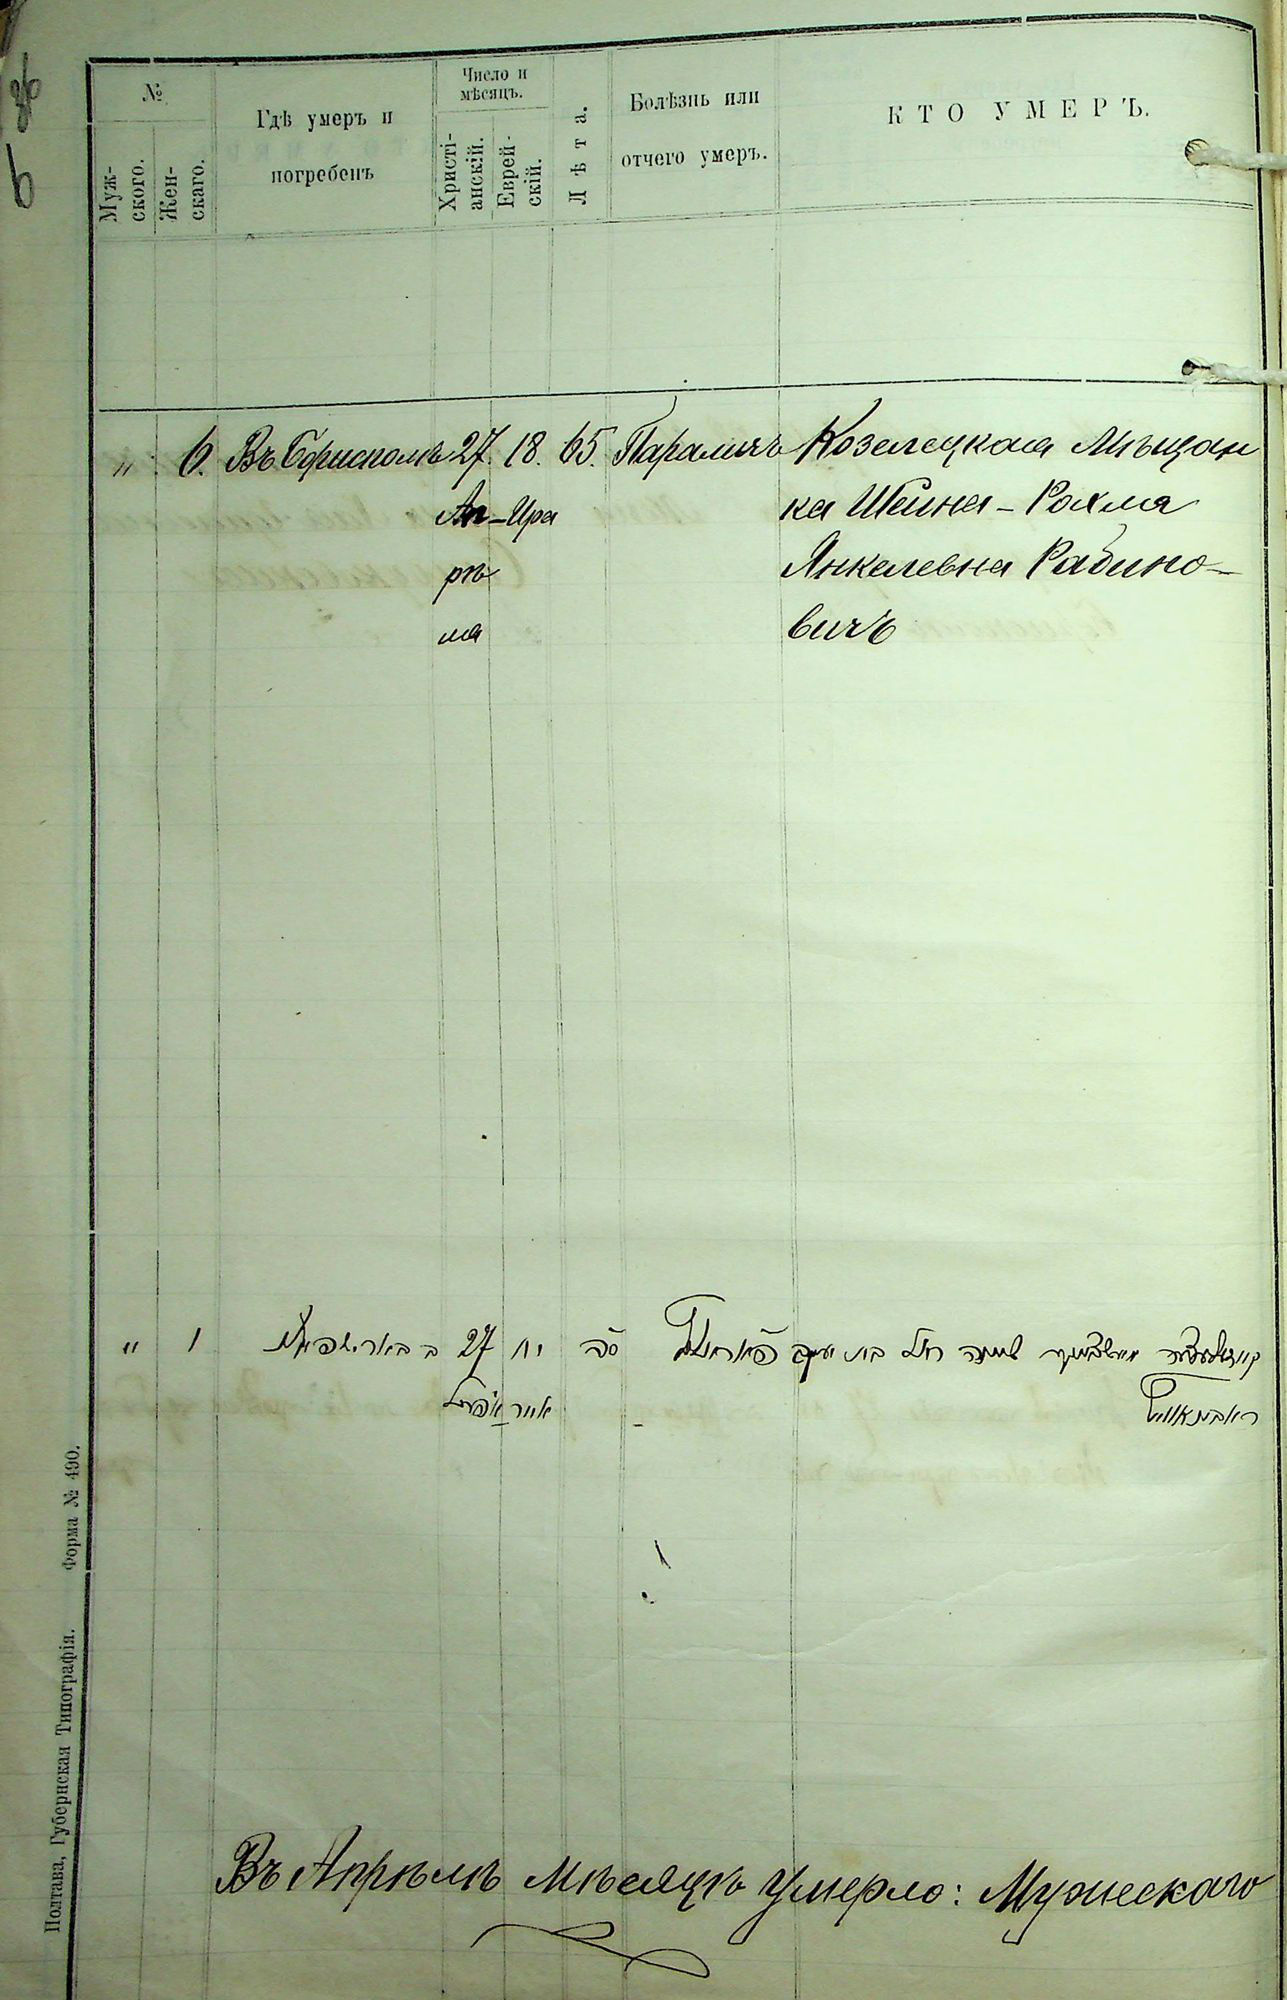 №
Муж-
ского.
Жен-
скаго.
Гдѣ умеръ и
погребенъ
Число и
мѣсяцъ.
Христі-
анскій.
Еврей-
скій.
Лѣта.
Болѣзнь или
отчего умеръ.
КТО УМЕРЪ.
" 6. Въ Борисполѣ 27. 18. 65. Параличъ Козелецкая Мѣщан
Ап- Ира ка Шейна-Рохля
рѣ Янкелевна Рабино-
ля вичъ
" 27 יח סה
אייר אפריל
Въ Апрѣлѣ мѣсяцѣ умерло: Мужескаго
Полтава, Губернская Типографія. Форма № 490.